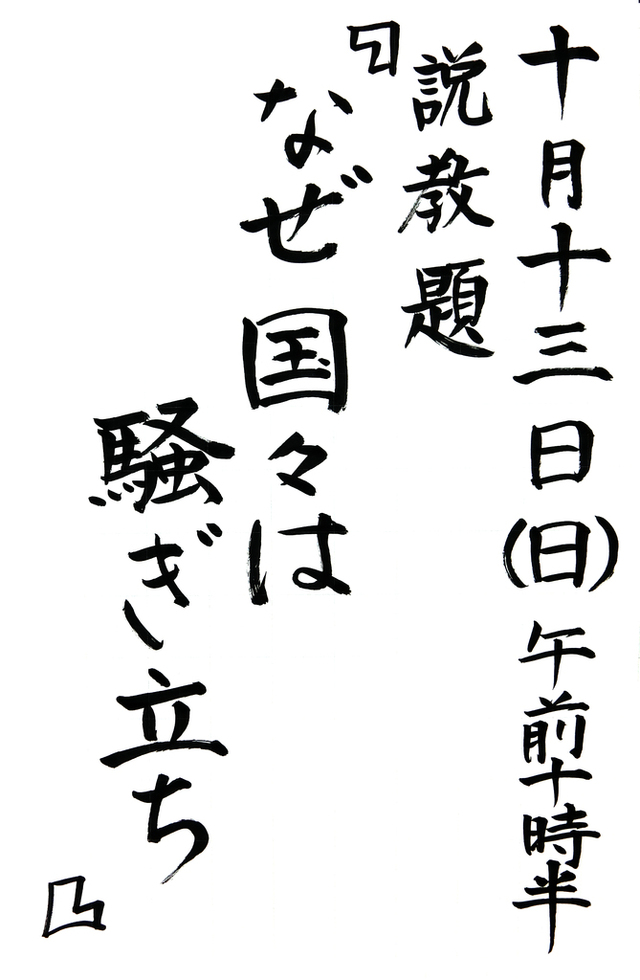 十月十三日(日)午前十時半
説教題
『なぜ国々は
騒ぎ立ち』